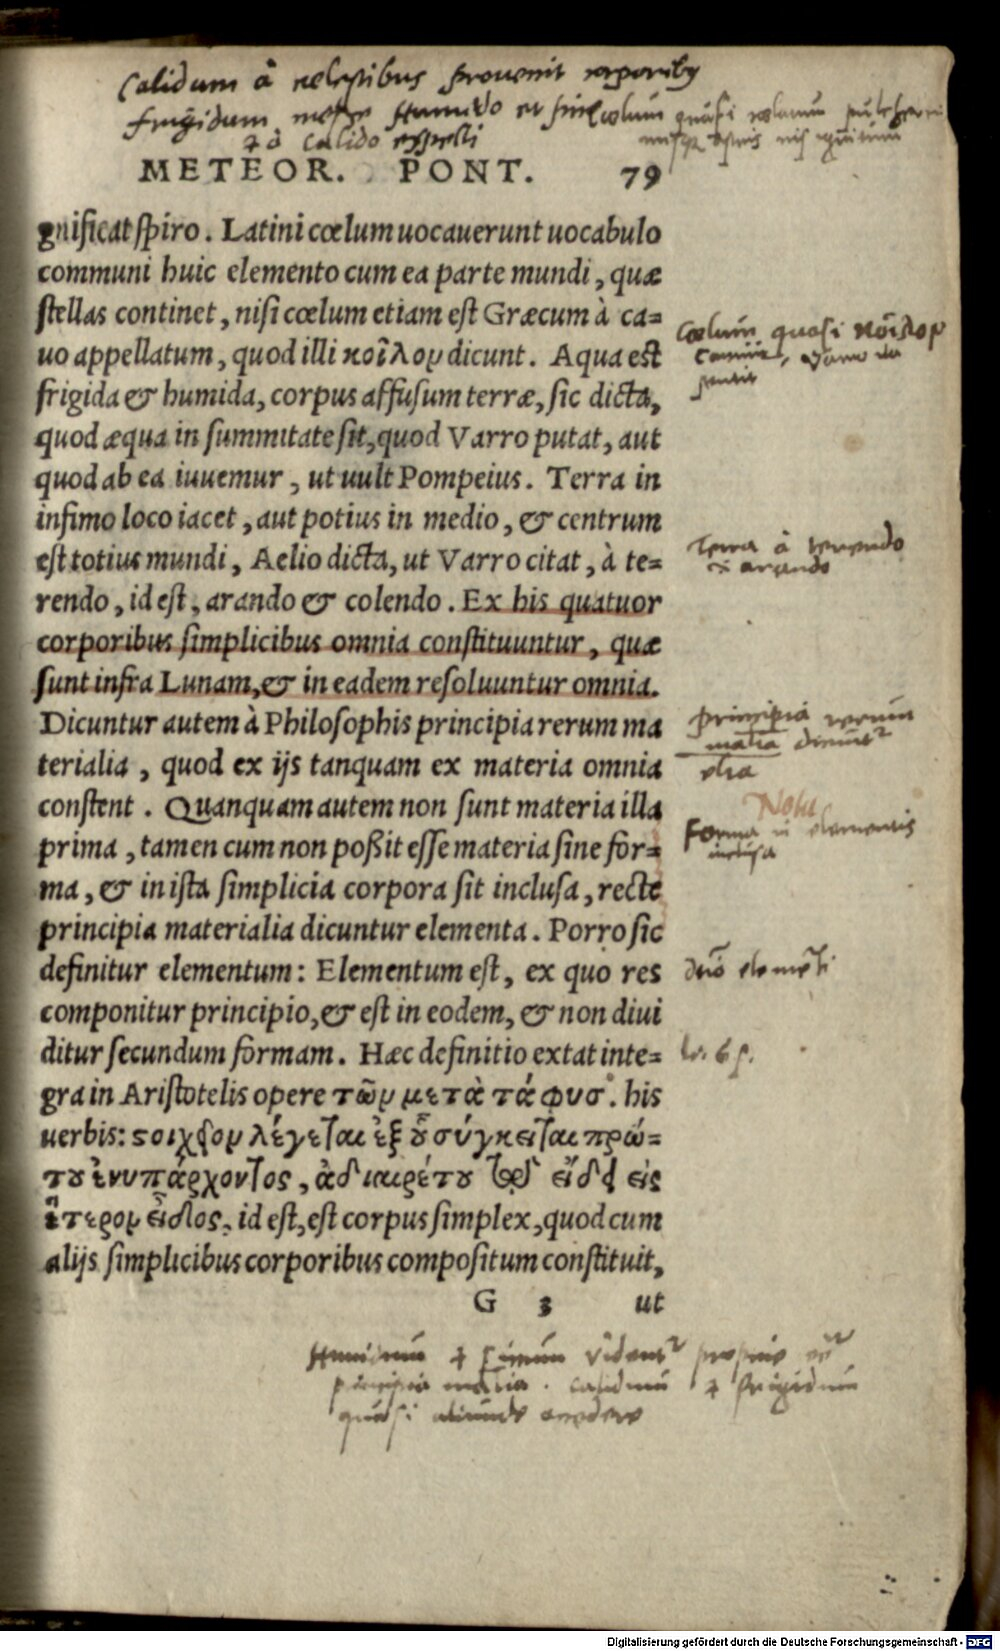 Calidum à celestibus provenit corporibus
frigidum
& à Calido expelli
METEOR. PONT. 79
gnificat spiro. Latini cœlum uocauerunt uocabulo
communi huic elemento cum ea parte mundi, quæ
stellas continet, nisi cœlum etiam est Græcum à ca=
uo appellatum, quod illi κοῖλον dicunt. Aqua est
frigida & humida, corpus affusum terræ, sic dicta,
quod æqua in summitate sit, quod Varro putat, aut
quod ab ea iuuemur, ut uult Pompeius. Terra in
infimo loco iacet, aut potius in medio, & centrum
est totius mundi, Aelio dicta, ut Varro citat, à te=
rendo, id est, arando & colendo. Ex his quatuor
corporibus simplicibus omnia constituuntur, quæ
sunt infra Lunam, & in eadem resoluuntur omnia.
Dicuntur autem à Philosophis principia rerum ma
terialia, quod ex ijs tanquam ex materia omnia
constent. Quanquam autem non sunt materia illa
prima, tamen cum non poßit esse materia sine for=
ma, & in ista simplicia corpora sit inclusa, recte
principia materialia dicuntur elementa. Porro sic
definitur elementum: Elementum est, ex quo res
componitur principio, & est in eodem, & non diui
ditur secundum formam. Hæc definitio extat inte=
gra in Aristotelis opere τῶν μετὰ τὰ φυσ. his
uerbis: στοιχεῖον λέγεται ἐξ οὗ σύγκειται πρώ=
του ἐνυπάρχοντος, ἀδιαιρέτου τῷ εἴδει εἰς
ἕτερον εἶδος, id est, est corpus simplex, quod cum
alijs simplicibus corporibus compositum constituit,
G 3 ut
Cœlum quasi κοῖλον
Terra à terendo
& arando
principia rerum
Nota
Forma in elementis
inclusa
principia
quasi aliunde accedere
Digitalisierung gefördert durch die Deutsche Forschungsgemeinschaft - DFG